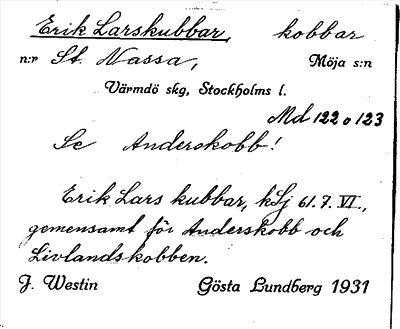 Erik Larskubbar, kobbar
n:r St. Nassa, Möja s:n
Värmdö skg, Stockholms l.
Md 122 o 123
Se Anderskobb!
Erik Lars kubbar, kSj 61.7.VI.,
gemensamt för Anderskobb och
Livlandskobben.
J. Westin Gösta Lundberg 1931